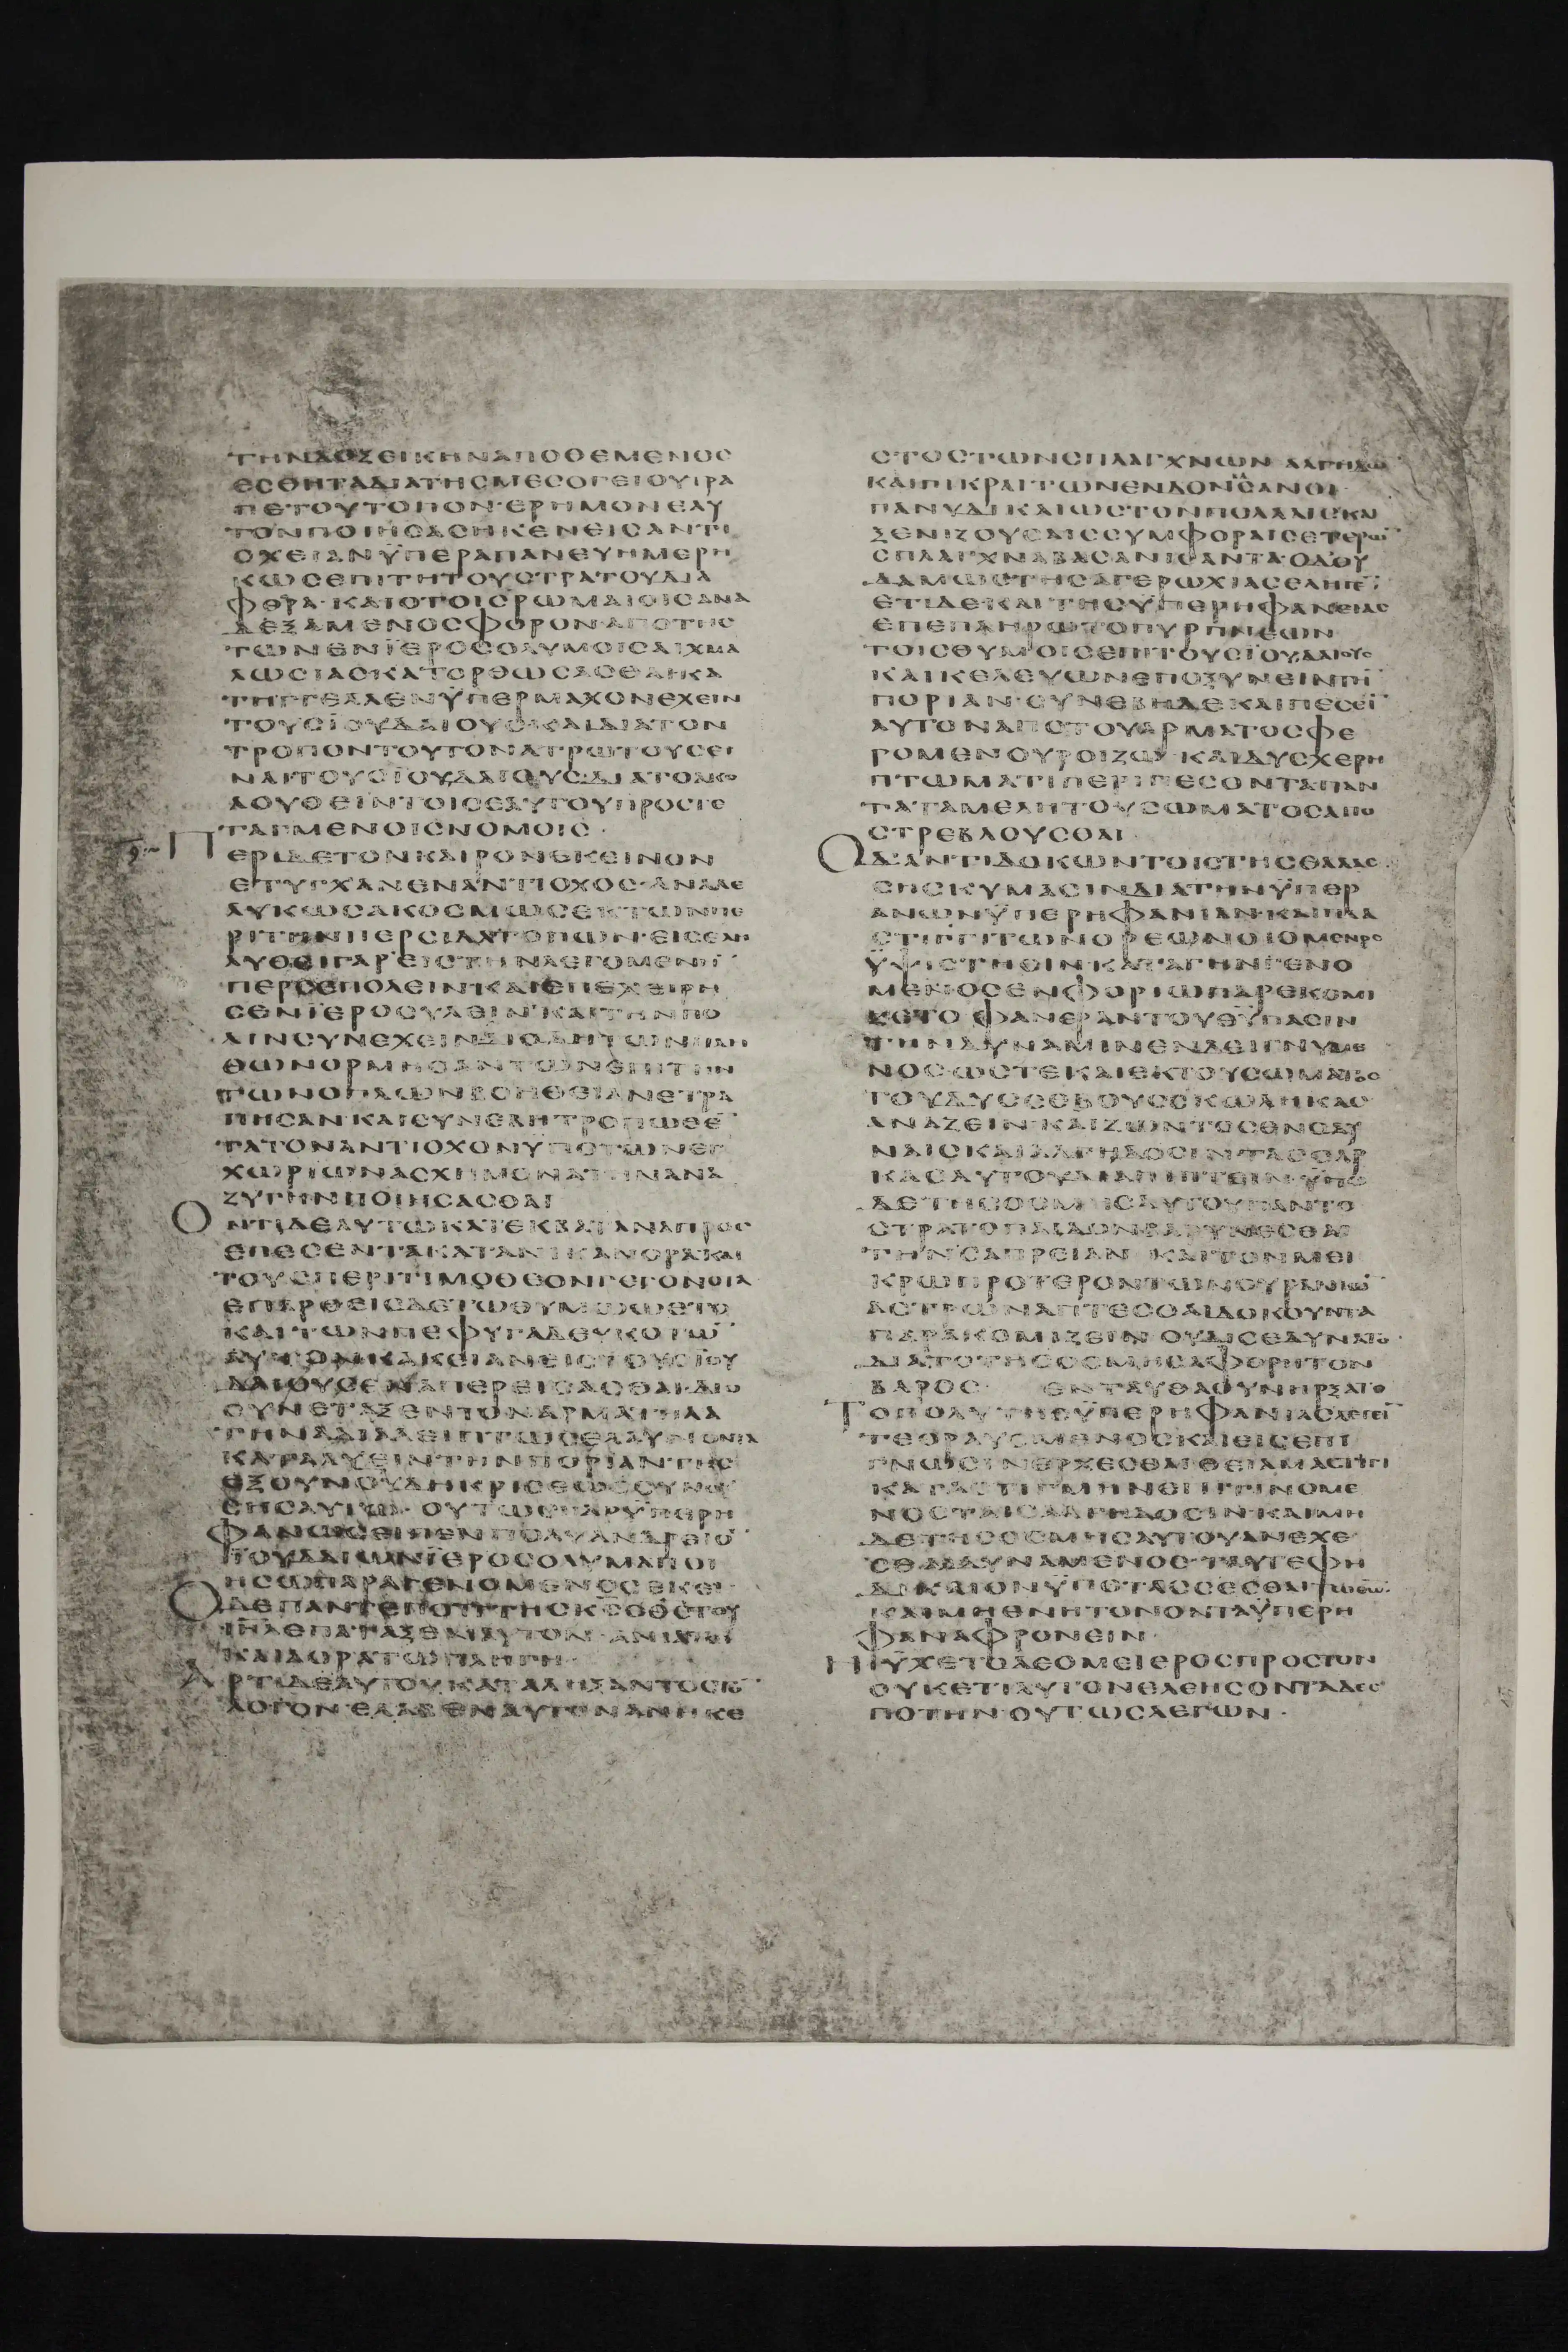 ΤΗΝΔΟΞΕΙΚΗΝΑΠΟΘΕΜΕΝΟC
ΕCΘΗΤΑΔΙΑΤΗCΜΕCΟΓΕΙΟΥΔΡΑ
ΠΕΤΟΥΤΟΠΟΝΕΡΗΜΟΝΕΑΥ
ΤΟΝΠΟΙΗCΑCΗΚΕΝΕΙCΑΝΤΙ
ΟΧΕΙΑΝΫΠΕΡΑΠΑΝΕΥΗΜΕΡΗ
ΚΩCΕΠΙΤΗΤΟΥCΤΡΑΤΟΥΔΙΑ
ΦΘΡΑ·ΚΑΙΟΤΟΙCΡΩΜΑΙΟΙCΑΝΑ
ΔΕΞΑΜΕΝΟCΦΟΡΟΝΑΠΟΤΗC
ΤΩΝΕΝΪΕΡΟCΟΛΥΜΟΙCΑΙΧΜΑ
ΛΩCΙΑCΚΑΤΟΡΘΩCΑCΘΑΙΚΑ
ΤΗΓΓΕΛΛΕΝΫΠΕΡΜΑΧΟΝΕΧΕΙΝ
ΤΟΥCΪΟΥΔΑΙΟΥC·ΚΑΙΔΙΑΤΟΝ
ΤΡΟΠΟΝΤΟΥΤΟΝΑΤΡΩΤΟΥCΕΙ
ΝΑΙΤΟΥCΪΟΥΔΑΙΟΥCΔΙΑΤΟΑΚΟ
ΛΟΥΘΕΙΝΤΟΙCΕΑΥΤΟΥΠΡΟCΤΕ
ΤΑΓΜΕΝΟΙCΝΟΜΟΙC·
ΠΕΡΙΔΕΤΟΝΚΑΙΡΟΝΕΚΕΙΝΟΝ
ΕΤΥΓΧΑΝΕΝΑΝΤΙΟΧΟC·ΑΝΑΛΕ
ΛΥΚΩCΑΚΟCΜΩCΕΚΤΩΝΠΕ
ΡΙΤΗΝΠΕΡCΙΔΑΤΟΠΩΝ·ΕΙCΕΛΗ
ΛΥΘΕΙΓΑΡΕΙCΤΗΝΛΕΓΟΜΕΝΗ̅
ΠΕΡCΕΠΟΛΕΙΝΚΑΙΕΠΕΧΕΙΡΗ
CΕΝΪΕΡΟCΥΛΕΙΝΚΑΙΤΗΝΠΟ
ΛΙΝCΥΝΕΧΕΙΝΔΙΟΔΗΤΩΝΠΛΗ
ΘΩΝΟΡΜΗCΑΝΤΩΝΕΠΙΤΗΝ
ΤΩΝΟΠΛΩΝΒΟΗΘΕΙΑΝΕΤΡΑ
ΠΗCΑΝ·ΚΑΙCΥΝΕΒΗΤΡΟΠΩΘΕ̅
ΤΑΤΟΝΑΝΤΙΟΧΟΝΥΠΟΤΩΝΕΓ
ΧΩΡΙΩΝΑCΧΗΜΟΝΑΤΗΝΑΝΑ
ΖΥΓΗΝΠΟΙΗCΑCΘΑΙ
ΟΝΤΙΔΕΑΥΤΩΚΑΤΕΚΒΑΤΑΝΑΠΡΟC
ΕΠΕCΕΝΤΑΚΑΤΑΝΙΚΑΝΟΡΑΚΑΙ
ΤΟΥCΠΕΡΙΤΙΜΟΘΕΟΝΓΕΓΟΝΟΤΑ
ΕΠΑΡΘΕΙCΔΕΤΩΘΥΜΩΩΕΤΟ
ΚΑΙΤΩΝΠΕΦΥΓΑΔΕΥΚΟΤΩ̅
ΑΥΤΟΝΚΑΚΕΙΑΝΕΙCΤΟΥCΪΟΥ
ΔΑΙΟΥCΕΝΑΠΕΡΕΙCΑCΘΑΙ·ΔΙΟ
CΥΝΕΤΑΞΕΝΤΟΝΑΡΜΑΤΗΛΑ
ΚΑΤΑΛΥΕΙΝΤΗΝΠΟΡΙΑΝΤΗC
CΗCΑΥΤΩ·ΟΥΤΩCΓΑΡΫΠΕΡΗ
ΦΑΝΩCΕΙΠΕΝΠΟΛΥΑΝΔΡΕΙΟ̅
ΪΟΥΔΑΙΩΝΪΕΡΟCΟΛΥΜΑΠΟΙ
ΗCΩΠΑΡΑΓΕΝΟΜΕΝΟCΕΚΕΙ
ΟΔΕΠΑΝΤΕΠΟΠΤΗCΚC̅ΟΘC̅ΤΟΥ
ΙΗΛ̅ΕΠΑΤΑΞΕΝΑΥΤΟΝ·ΑΝΙΑΤΩ
ΚΑΙΑΟΡΑΤΩΠΛΗΓΗ·
ΑΡΤΙΔΕΑΥΤΟΥΚΑΤΑΛΗΞΑΝΤΟCΤΟ̅
ΛΟΓΟΝΕΛΑΒΕΝΑΥΤΟΝΑΝΗΚΕ
CΤΟCΤΩΝCΠΛΑΓΧΝΩΝΑΛΓΗΔΩ̅
ΚΑΙΠΙΚΡΑΙΤΩΝΕΝΔΟΝΒΑCΑΝΟΙ·
ΠΑΝΥΔΙΚΑΙΩCΤΟΝΠΟΛΛΑΙCΚΑΙ
ΞΕΝΙΖΟΥCΑΙCCΥΜΦΟΡΑΙCΕΤΕΡΩ̅
CΠΛΑΓΧΝΑΒΑCΑΝΙCΑΝΤΑ·ΟΔΟΥ
ΔΑΜΩCΤΗCΑΓΕΡΩΧΙΑCΕΛΗΓΕ̅·
ΕΤΙΔΕΚΑΙΤΗCΥΠΕΡΗΦΑΝΕΙΑC
ΕΠΕΠΛΗΡΩΤΟΠΥΡΠΝΕΩΝ
ΤΟΙCΘΥΜΟΙCΕΠΙΤΟΥCΪΟΥΔΑΙΟΥC
ΚΑΙΚΕΛΕΥΩΝΕΠΟΞΥΝΕΙΝΤΗ̅
ΠΟΡΙΑΝ·CΥΝΕΒΗΔΕΚΑΙΠΕCΕΙ̅
ΑΥΤΟΝΑΠΟΤΟΥΑΡΜΑΤΟCΦΕ
ΡΟΜΕΝΟΥΡΟΙΖΩ·ΚΑΙΔΥCΧΕΡΗ
ΠΤΩΜΑΤΙΠΕΡΙΠΕCΟΝΤΑΠΑΝ
ΤΑΤΑΜΕΛΗΤΟΥCΩΜΑΤΟCΑΠΟ
CΤΡΕΒΛΟΥCΘΑΙ
ΟΔΑΝΤΙΔΟΚΩΝΤΟΙCΤΗCΘΑΛΑC
CΗCΚΥΜΑCΙΝΔΙΑΤΗΝΫΠΕΡ
ΑΝΩΝΫΠΕΡΗΦΑΝΙΑΝ·ΚΑΙΠΛΑ
CΤΙΓΓΙΤΩΝΟΡΕΩΝΟΙΟΜΕΝΟC
ΫΨΙCΤΗCΙΝΚΑΤΑΓΗΝΓΕΝΟ
ΜΕΝΟCΕΝΦΟΡΙΩΠΑΡΕΚΟΜΙ
ΖΕΤΟΦΑΝΕΡΑΝΤΟΥΘΥ̅ΠΑCΙΝ
ΤΗΝΔΥΝΑΜΙΝΕΝΔΕΙΓΝΥΜΕ
ΝΟC·ΩCΤΕΚΑΙΕΚΤΟΥCΩΜΑΤΟC
ΤΟΥΔΥCCΕΒΟΥCCΚΩΛΗΚΑC
ΑΝΑΖΕΙΝ·ΚΑΙΖΩΝΤΟCΕΝΟΔΥ
ΝΑΙCΚΑΙΑΛΓΗΔΟCΙΝΤΑCCΑΡ
ΚΑCΑΥΤΟΥΔΙΑΠΙΠΤΕΙΝ·ΫΠΟ
ΔΕΤΗCΟCΜΗCΑΥΤΟΥΠΑΝΤΟ
CΤΡΑΤΟΠΑΙΔΟΝΒΑΡΥΝΕCΘΑΙ
ΤΗΝCΑΠΡΕΙΑΝ·ΚΑΙΤΟΝΜΕΙ
ΚΡΩΠΡΟΤΕΡΟΝΤΩΝΟΥΡΑΝΙΩ̅
ΑCΤΡΩΝΑΠΤΕCΘΑΙΔΟΚΟΥΝΤΑ
ΠΑΡΑΚΟΜΙΖΕΙΝΟΥΔΙCΕΔΥΝΑΤΟ
ΔΙΑΤΟΤΗCΟCΜΗCΑΦΟΡΗΤΟΝ
ΒΑΡΟC· ΕΝΤΑΥΘΑΟΥΝΗΡΞΑΤΟ
ΤΟΠΟΛΥΤΗCΫΠΕΡΗΦΑΝΙΑCΛΕΓΕΙ̅
ΤΕΘΡΑΥCΜΕΝΟCΚΑΙΕΙCΕΠΙ
ΓΝΩCΙΝΕΡΧΕCΘΑΙΘΕΙΑΜΑCΤΙΓΙ
ΚΑΤΑCΤΙΓΜΗΝΕΠΙΤΙΝΟΜΕ
ΝΟCΤΑΙCΑΛΓΗΔΟCΙΝΚΑΙΜΗ
ΔΕΤΗCΟCΜΗCΑΥΤΟΥΑΝΕΧΕ
CΘΑΙΔΥΝΑΜΕΝΟC·ΤΑΥΤΕΦΗ
ΔΙΚΑΙΟΝΫΠΟΤΑCCΕCΘΑΙΤΩΘΕΩ·
ΚΑΙΜΗΘΝΗΤΟΝΟΝΤΑΫΠΕΡΗ
ΦΑΝΑΦΡΟΝΕΙΝ·
ΗΫΧΕΤΟΔΕΟΜΕΙΕΡΟCΠΡΟCΤΟΝ
ΟΥΚΕΤΙΑΥΤΟΝΕΛΕΗCΟΝΤΑΔΕC
ΠΟΤΗΝ·ΟΥΤΩCΛΕΓΩΝ·